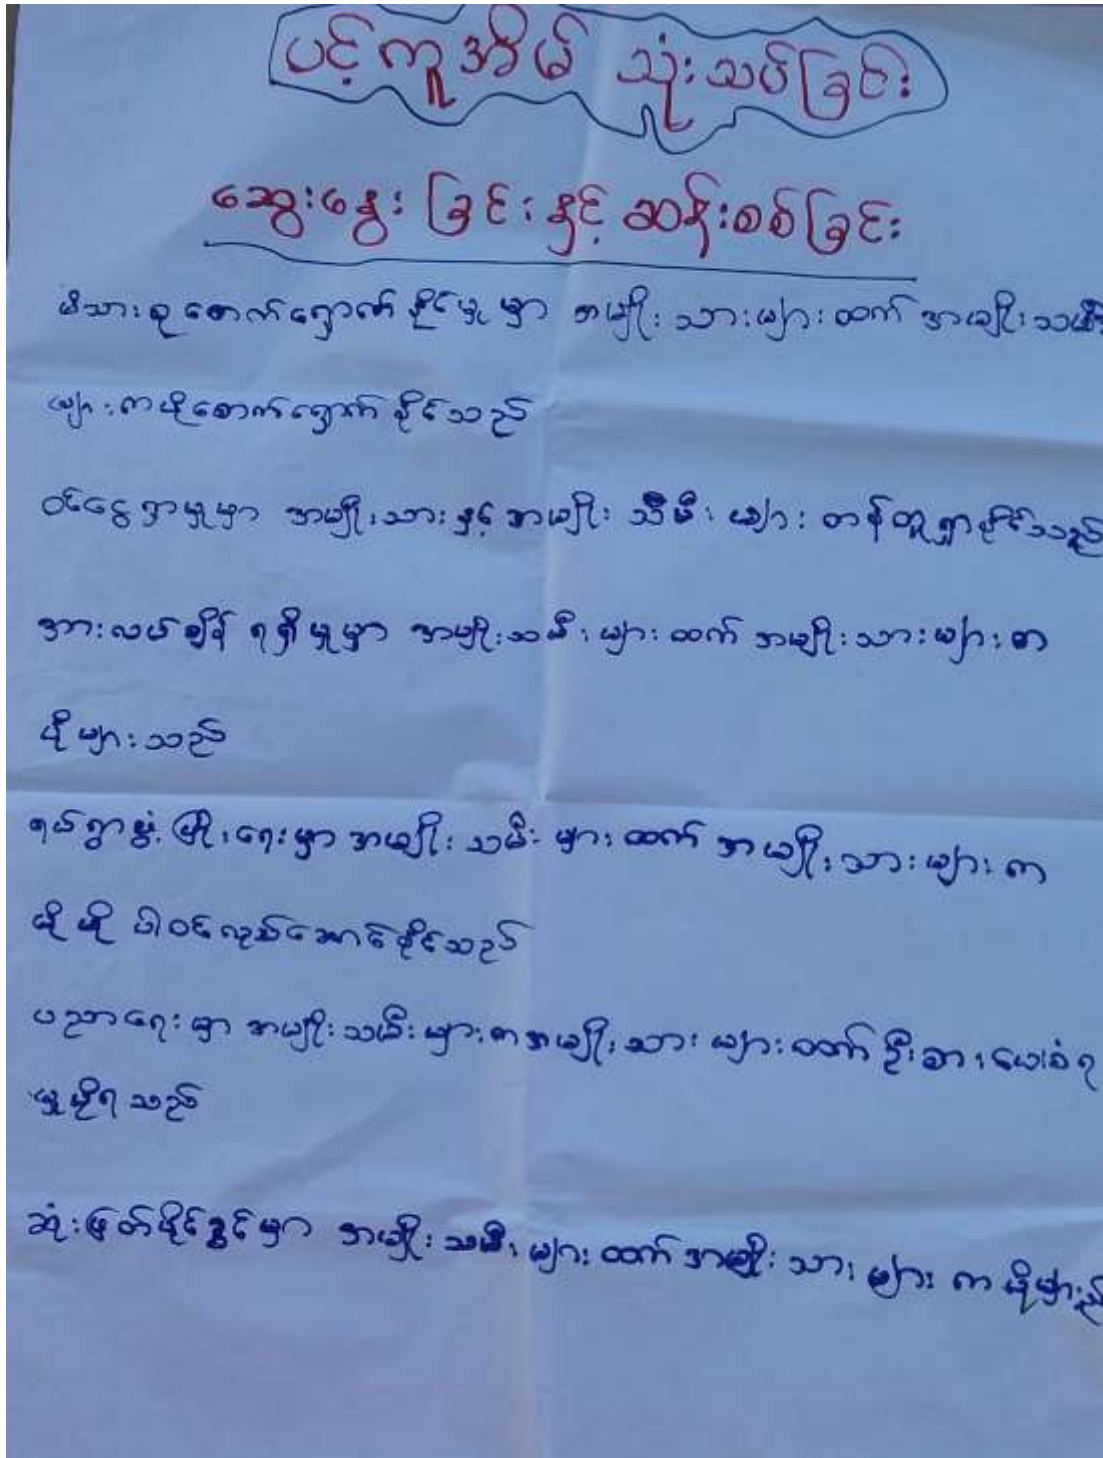 ပင့်ကူအိမ် သုံးသပ်ခြင်း
ဆွေးနွေးခြင်းနှင့် ဆန်းစစ်ခြင်း
မိသားစု စောက်ရှောက် နိုင်မှု မှာ အမျိုးသားများထက် အမျိုးသမီး
များကပိုစောက်ရှောက်နိုင်သည်
ဝင်ငွေရှာမှုမှာ အမျိုးသားနှင့် အမျိုးသမီးများ တန်တူရှာနိုင်သည်
အားလပ်ချိန် ရရှိမှုမှာ အမျိုးသမီးများထက် အမျိုးသားများက
ပိုများသည်
ရပ်ရွာဖွံ့ဖြိုးရေးမှာ အမျိုးသမီးများထက် အမျိုးသားများက
ပိုပို ပါဝင်လုပ်ဆောင်နိုင်သည်
ပညာရေးမှာ အမျိုးသမီးများကအမျိုးသားများထက် ဦးစားပေးခံရ
မှုပိုရသည်
ဆုံးဖြတ်ပိုင်ခွင့်မှာ အမျိုးသမီးများထက် အမျိုးသားများက ပိုများသည်